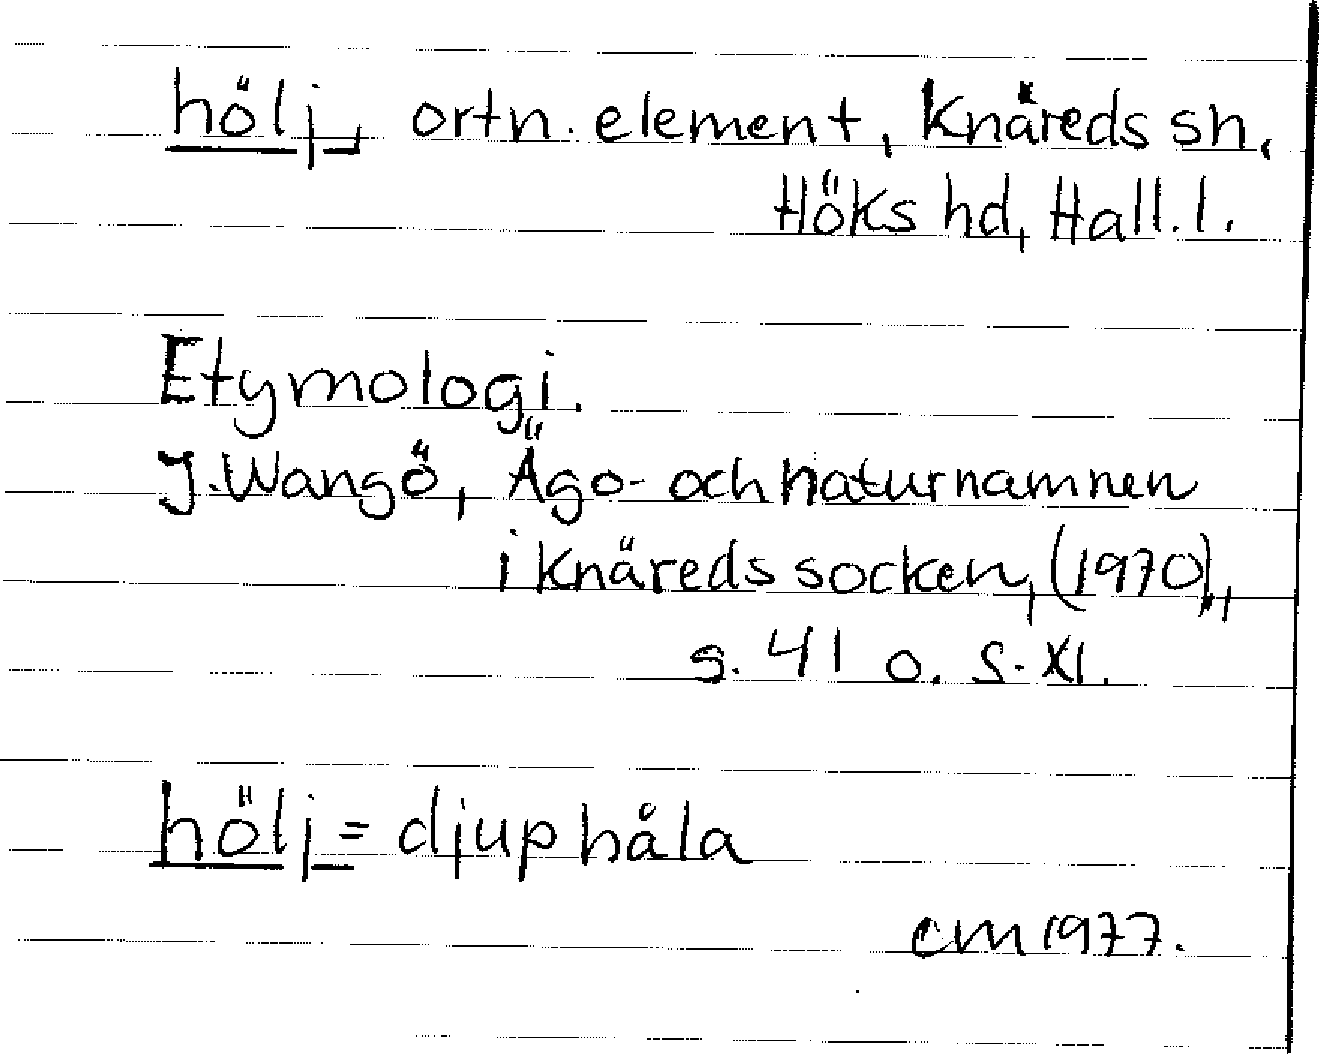 hölj, ortn. element, Knäreds sn,
Höks hd, Hall. l.
Etymologi.
J. Wangö, Ägo- och naturnamnen
i Knäreds socken, (1970),
s. 41 o. s. XI.
hölj = djup håla
CM 1977.